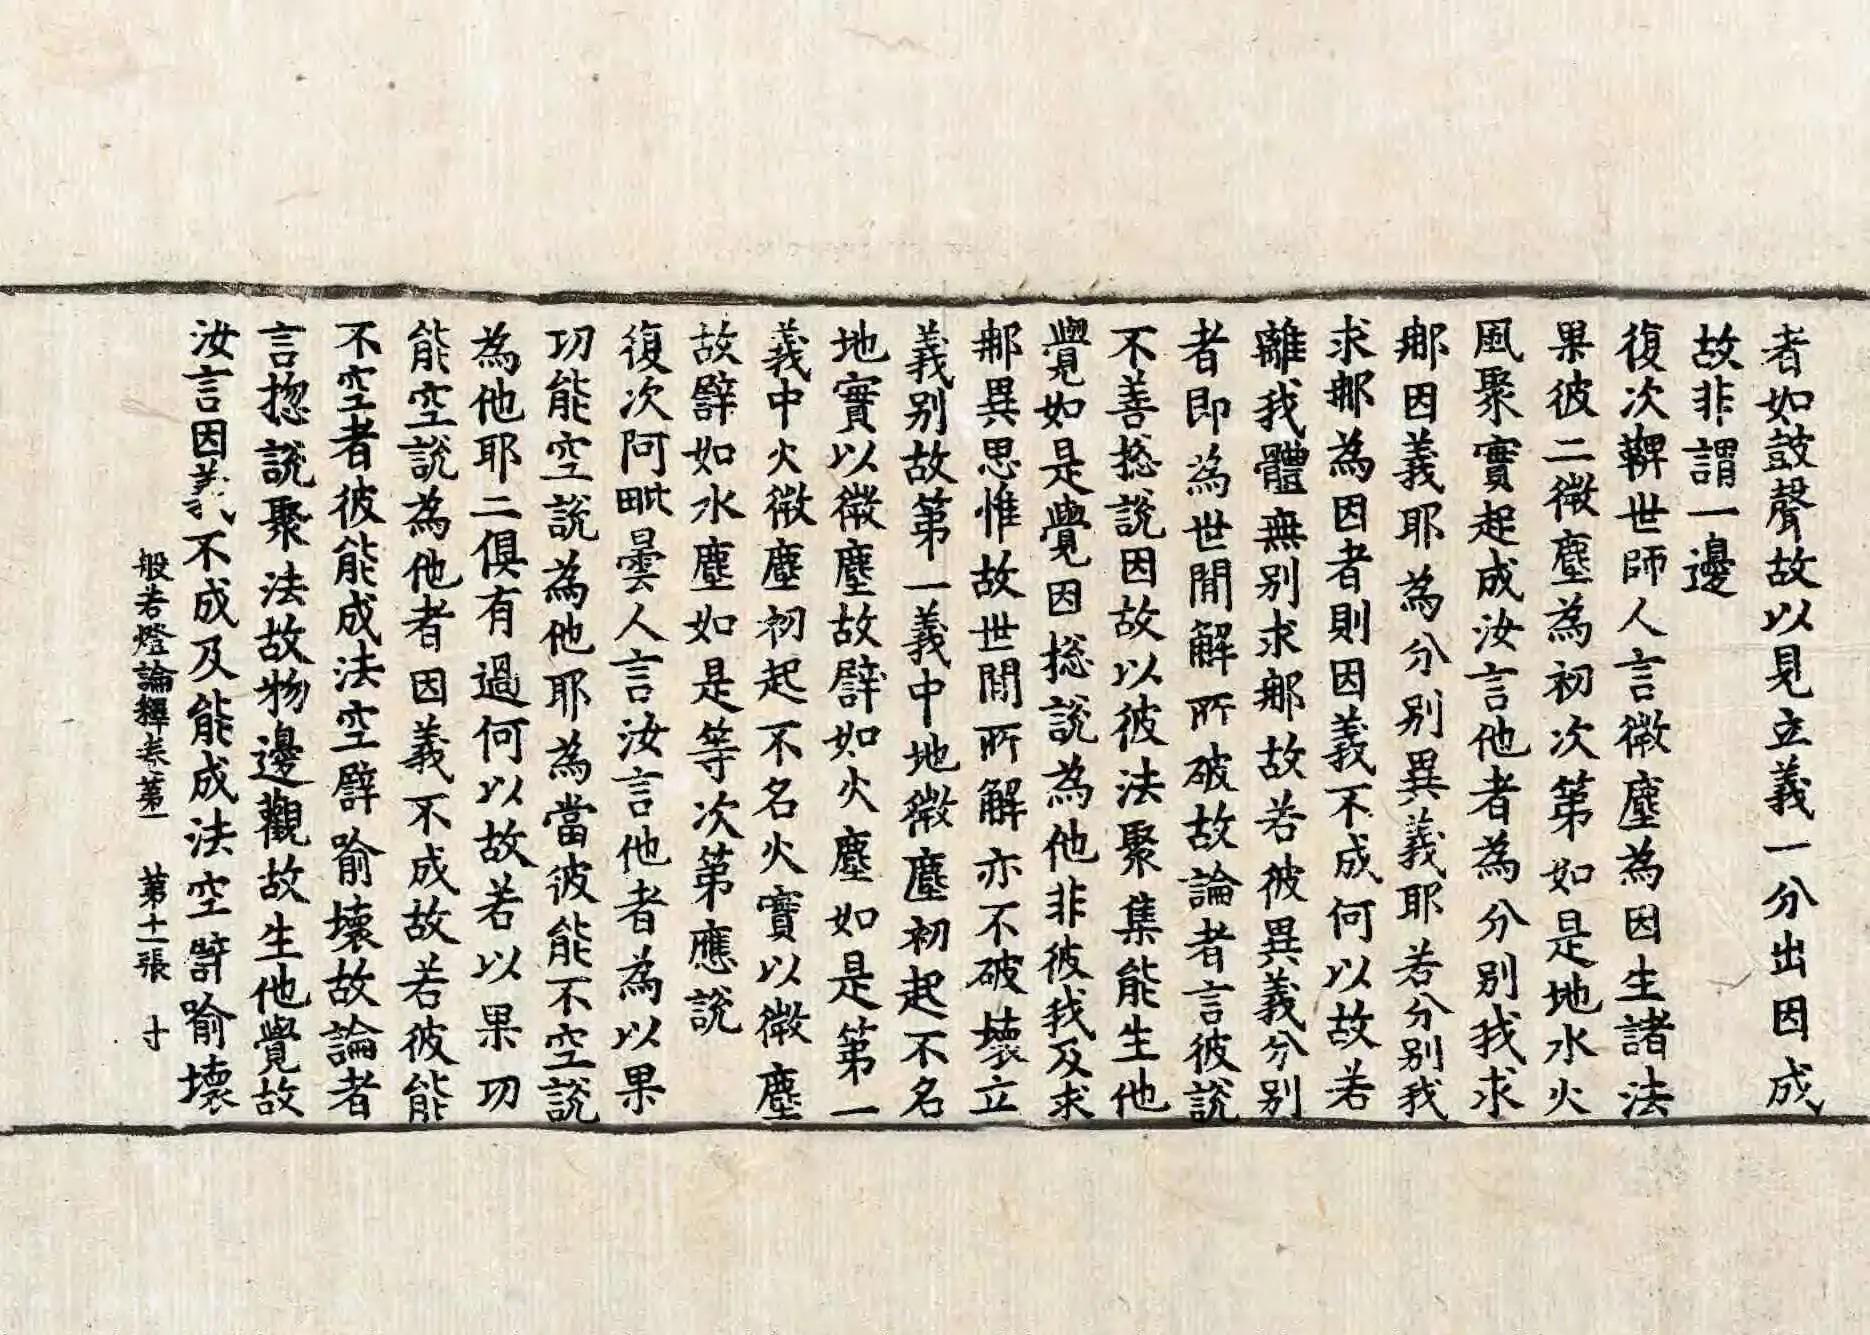 者如鼓聲故以見立義一分出因成
故非謂一邊
復次鞞世師人言微塵為因生諸法
果彼二微塵為初次第如是地水火
風聚實起成汝言他者為分別我求
那因義耶為分別異義耶若分別我
求那為因者則因義不成何以故若
離我體無別求那故若彼異義分別
者即為世間解所破故論者言彼說
不善揔說因故以彼法聚集能生他
覺如是覺因揔說為他非彼我及求
那異思惟故世間所解亦不破壞立
義別故第一義中地微塵初起不名
地實以微塵故譬如火塵如是第一
義中火微塵初起不名火實以微塵
故譬如水塵如是等次第應說
復次阿毗曇人言汝言他者為以果
功能空說為他耶為當彼能不空說
為他耶二俱有過何以故若以果功
能空說為他者因義不成故若彼能
不空者彼能成法空譬喻壞故論者
言揔說聚法故物邊觀故生他覺故
汝言因義不成及能成法空譬喻壞
般若燈論釋卷第一　第十一張　寸